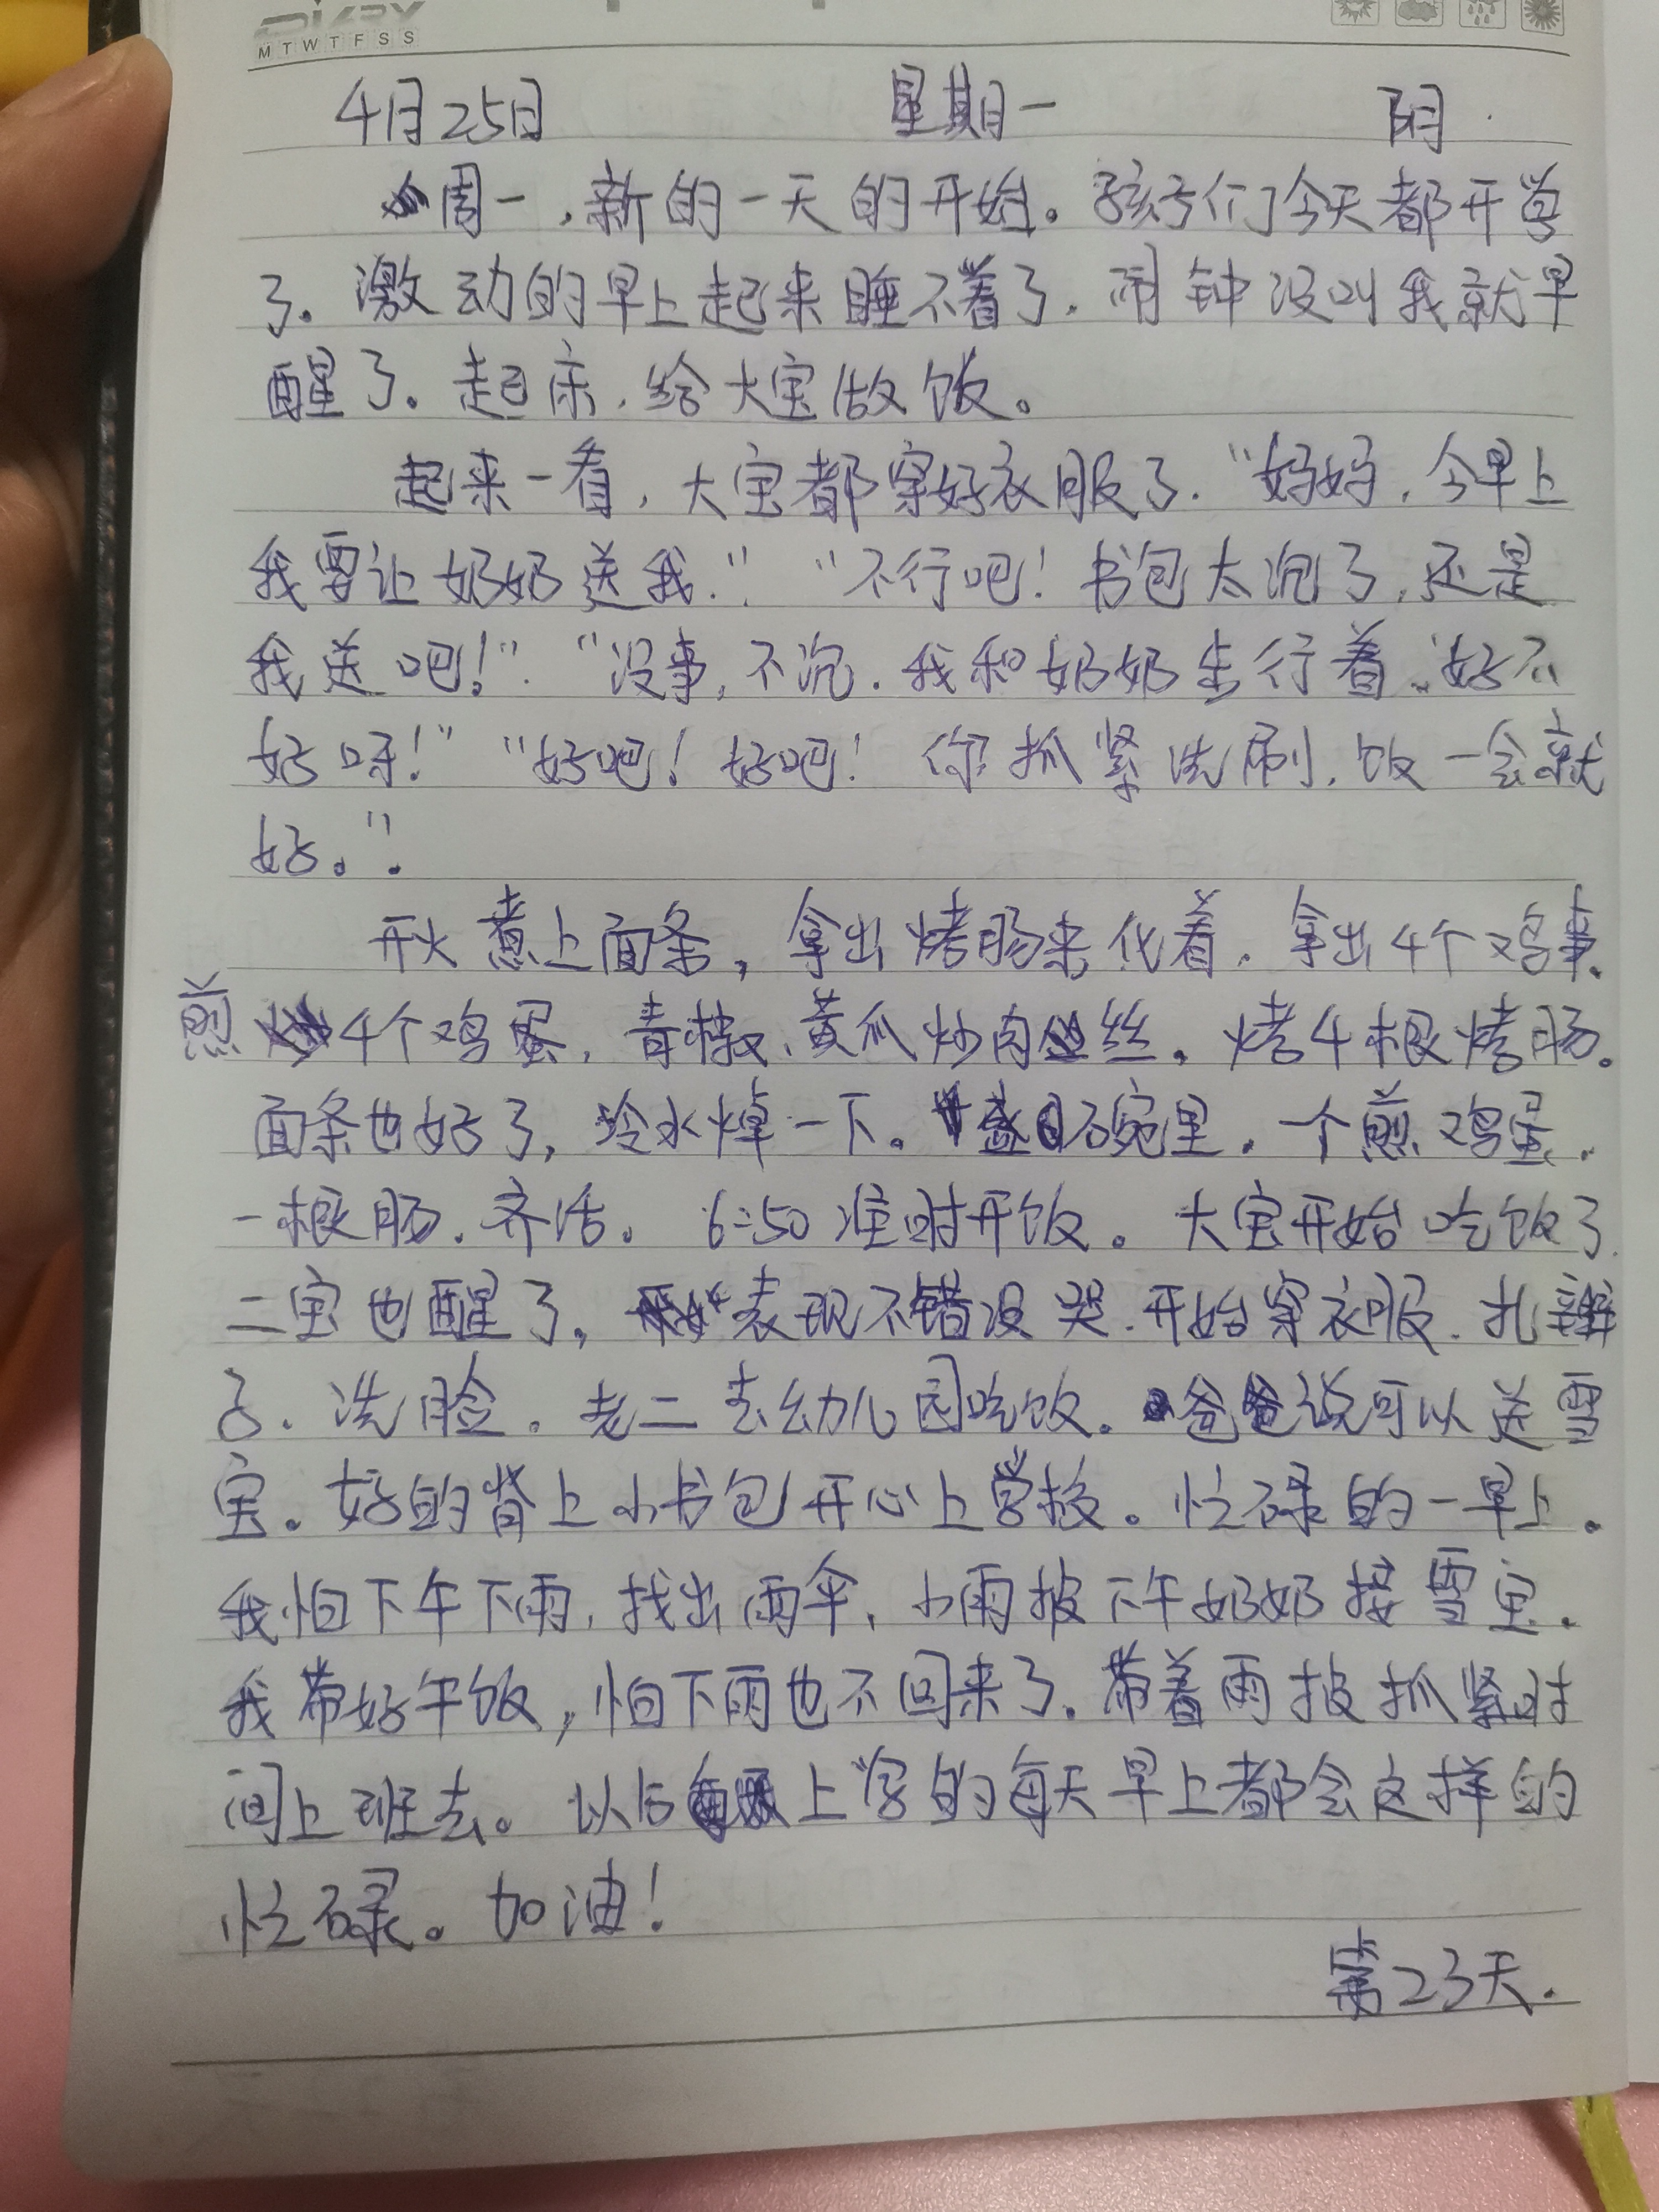 DIARY
M T W T F S S
4月25日 星期一 阴.
周一,新的一天的开始。孩子们今天都开学
了。激动的早上起来睡不着了.闹钟没叫我就早
醒了。起床,给大宝做饭。
起来一看,大宝都穿好衣服了."妈妈,今早上
我要让奶奶送我." "不行吧!书包太沉了,还是
我送吧!" "没事,不沉.我和奶奶步行着."好不
好呀!" "好吧!好吧!你抓紧洗刷,饭一会就
好。".
开火煮上面条,拿出烤肠来化着.拿出4个鸡事.
煎4个鸡蛋,青椒、黄瓜炒肉丝。烤4根烤肠。
面条也好了,冷水焯一下。盛碗里.一个煎鸡蛋.
一根肠.齐活。6:50准时开饭。大宝开始吃饭了.
二宝也醒了,表现不错没哭.开始穿衣服.扎辫
子.洗脸。老二去幼儿园吃饭。爸爸说可以送雪
宝。好的背上小书包开心上学校。忙碌的一早上。
我怕下午下雨,找出雨伞,小雨披下午奶奶接雪宝.
我带好午饭,怕下雨也不回来了.带着雨披抓紧时
间上班去。以后上学的每天早上都会这样的
忙碌。加油!
第23天.